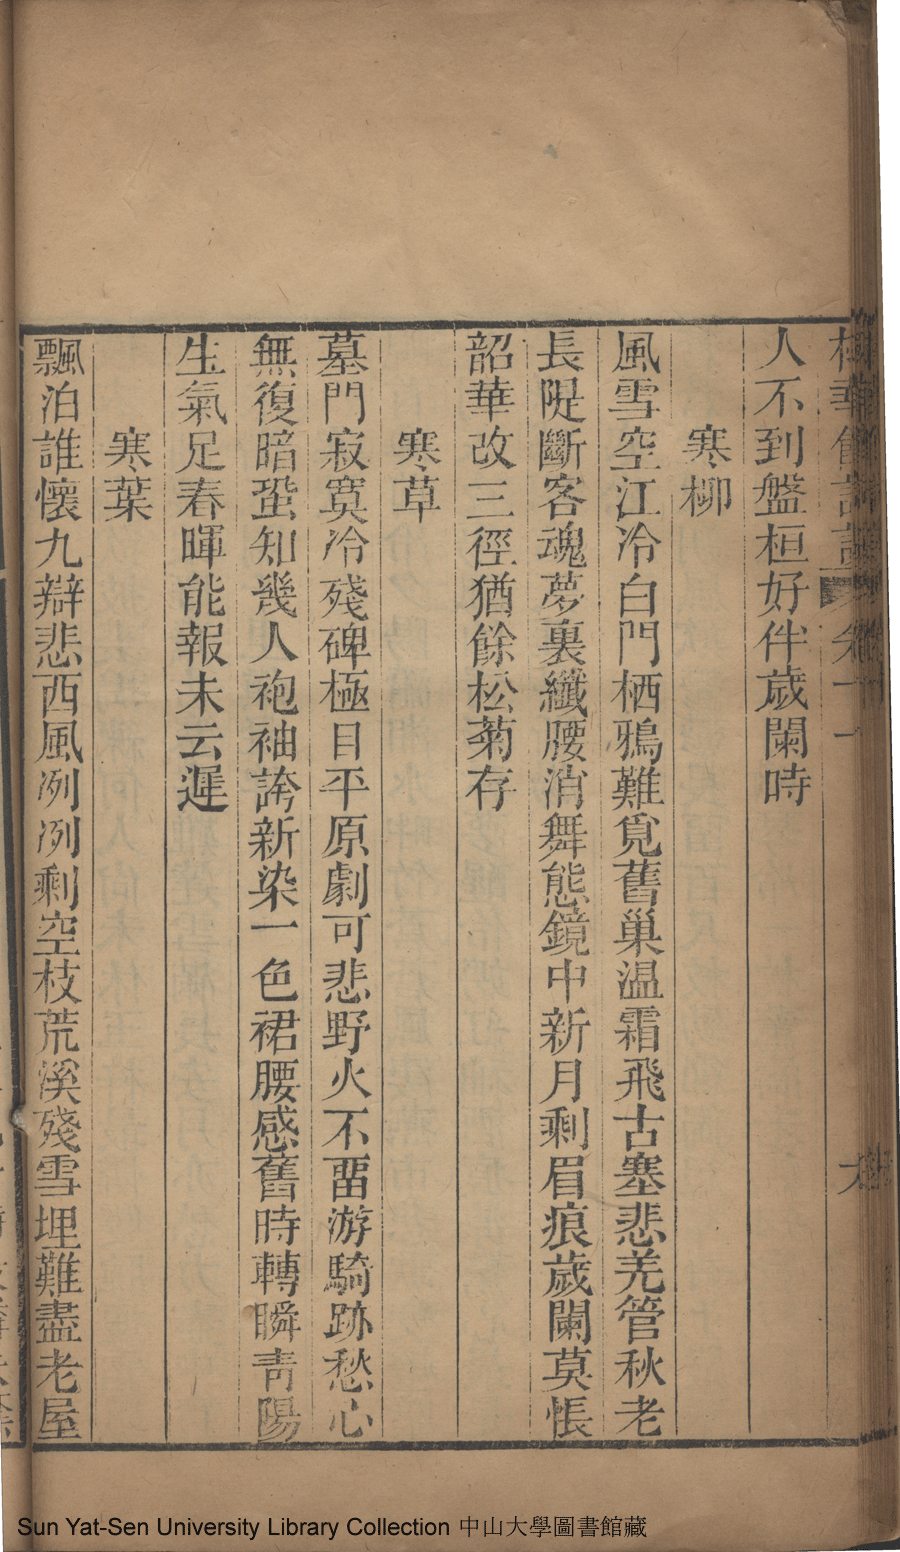 人不到盤桓好伴歲闌時
寒柳
風雪空江冷白門栖鴉難覓舊巢温霜飛古塞悲羌管秋老
長隄斷客魂夢裏纖腰消舞態鏡中新月剩眉痕歲闌莫悵
韶華改三徑猶餘松菊存
寒草
墓門寂寞冷殘碑極目平原劇可悲野火不畱游騎跡愁心
無復暗蛩知幾人袍袖誇新染一色裙腰感舊時轉瞬青陽
生氣足春暉能報未云遲
寒葉
飄泊誰懷九辯悲西風冽冽剩空枝荒溪殘雪埋難盡老屋
Sun Yat-Sen University Library Collection 中山大學圖書館藏